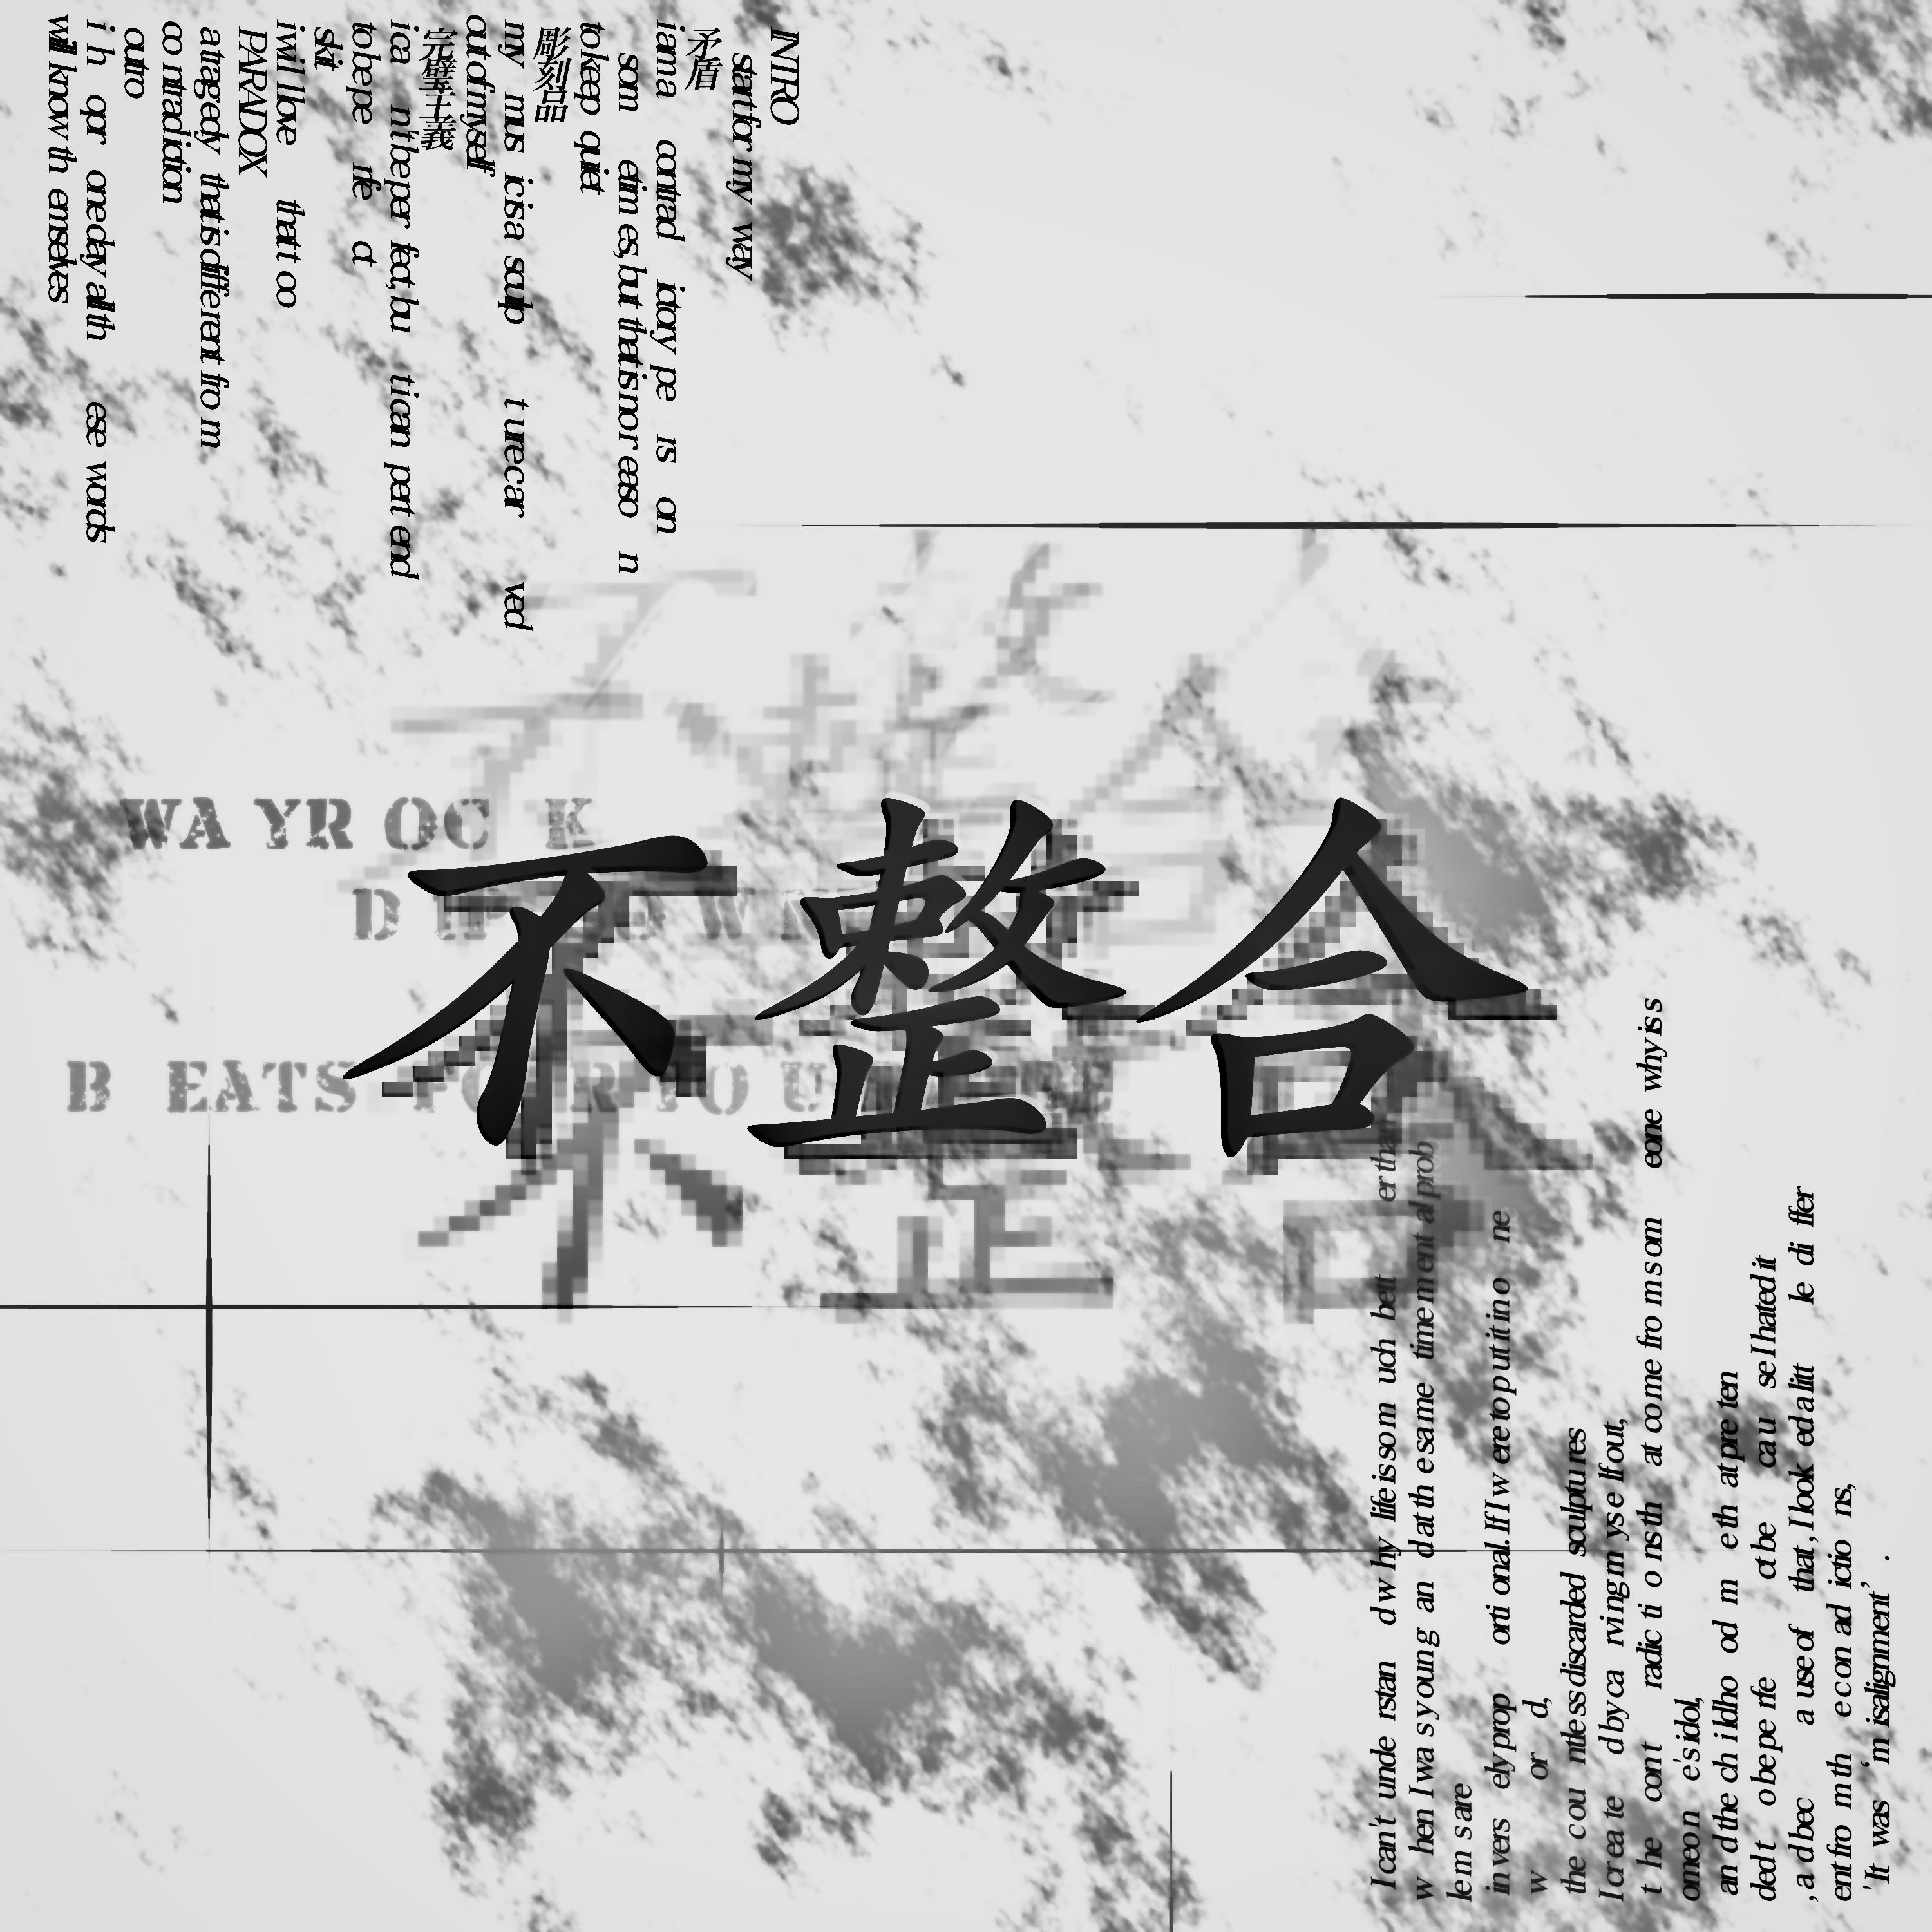 INTRO
start for my way
矛盾
i am a contradictory person
sometimes, but that is no reason
to keep quiet
彫刻品
my music is a sculpture carved
out of myself
完璧主義
i can't be perfect, but i can pertend
to be perfect
skit
i will love that too
PARADOX
a tragedy that is different from
contradiction
outro
i hope one day all these words
will know themselves
WAYROCK
BEATS FOR YOU
不整合
I can't understand why life is so much better than
when I was young and at the same time mental prob
lems are
inversely proportional. If I were to put it in one
word,
the countless discarded sculptures
I create by carving myself out,
the contradictions that come from someone why is s
omeone's idol,
and the childhood me that preten
ded to be perfect because I hated it
, and because of that, I looked a little differ
ent from the contradictions,
'It was 'misalignment'.